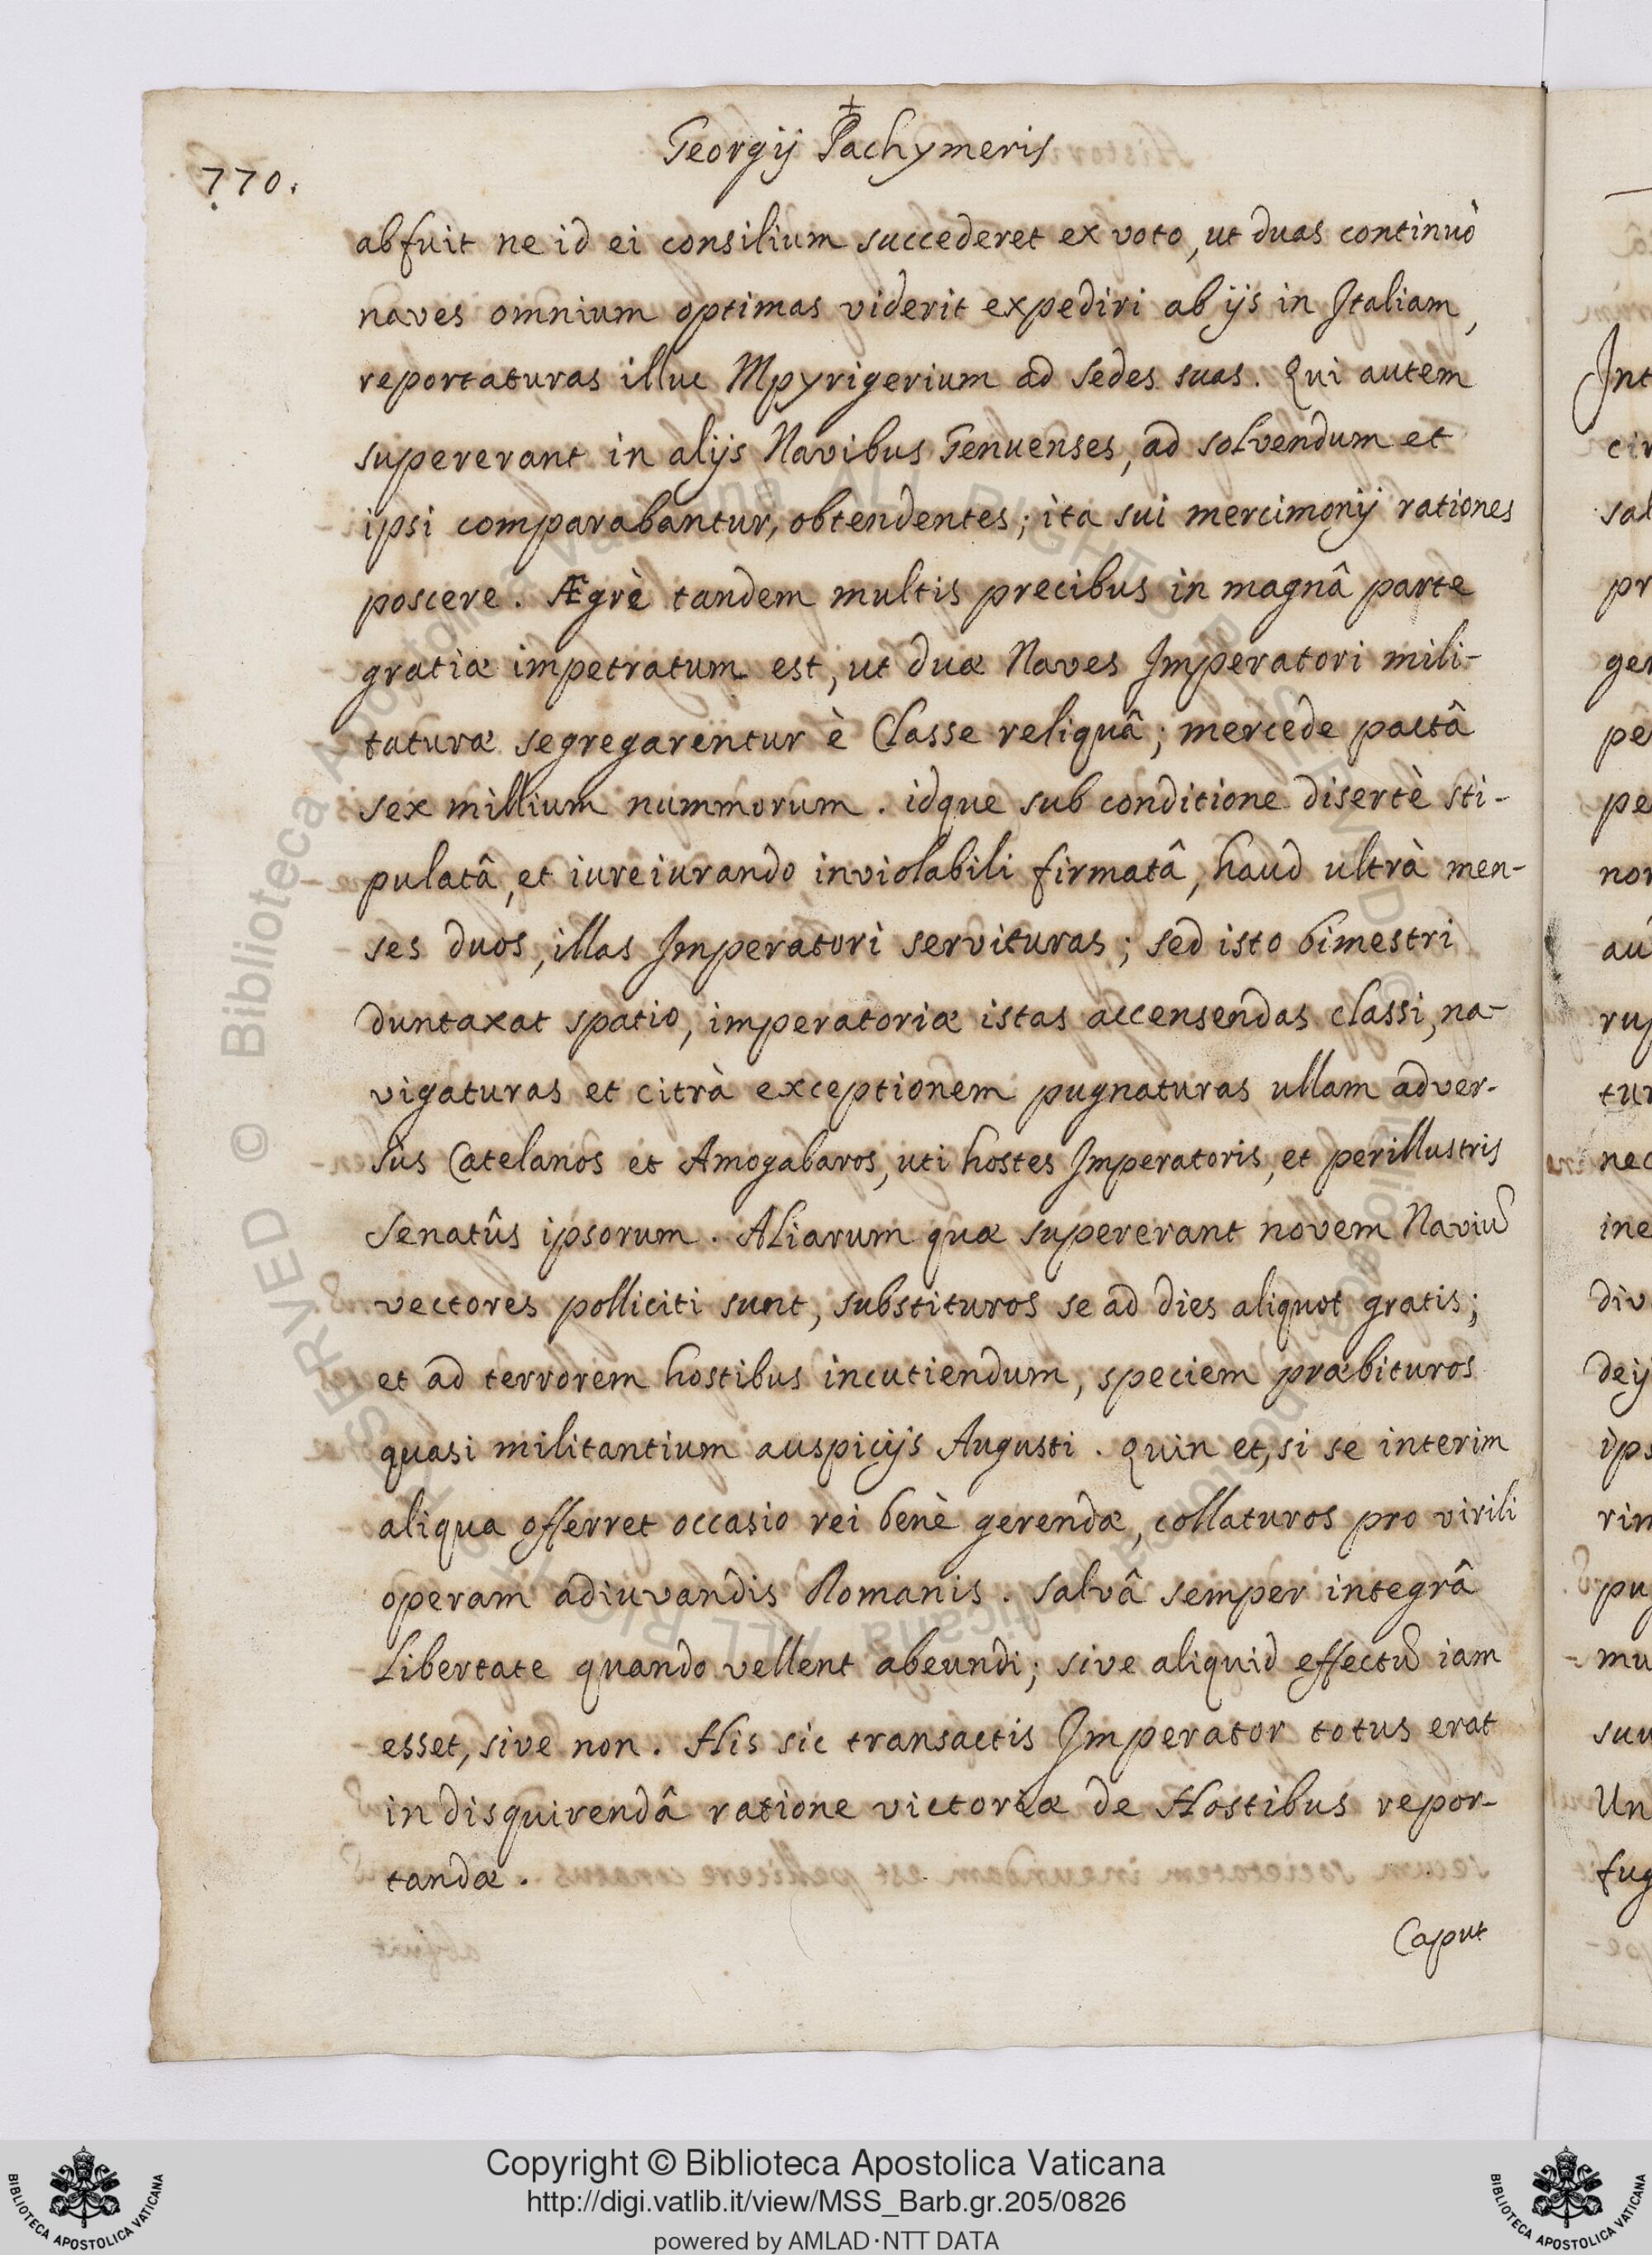 +
Georgij Pachymeris
770.
abfuit ne id ei consilium succederet ex voto, ut duas continuò
naves omnium optimas viderit expediri ab ijs in Italiam,
reportaturas illuc Mpyrigerium ad sedes suas. Qui autem
supererant in alijs Navibus Genuenses, ad solvendum et
ipsi comparabantur, obtendentes; ita sui mercimonij rationes
poscere. Ægrè tandem multis precibus in magnâ parte
gratiæ impetratum est, ut duæ Naves Imperatori mili-
taturæ segregarentur è Classe reliquâ; mercede pactâ
sex millium nummorum. idque sub conditione disertè sti-
pulatâ, et iureiurando inviolabili firmatâ, haud ultrà men-
ses duos, illas Imperatori servituras; sed isto bimestri
duntaxat spatio, imperatoriæ istas accensendas classi, na-
vigaturas et citrà exceptionem pugnaturas ullam adver-
sùs Catelanos et Amogabaros, uti hostes Imperatoris, et perillustris
Senatûs ipsorum. Aliarum quæ supererant novem Naviũ
vectores polliciti sunt, substituros se ad dies aliquot gratis;
et ad terrorem hostibus incutiendum, speciem præbituros
quasi militantium auspicijs Augusti. Quin et, si se interim
aliqua offerret occasio rei benè gerendæ, collaturos pro virili
operam adiuvandis Romanis. salvâ semper integrâ
Libertate quando vellent abeundi; sive aliquid effectũ iam
esset, sive non. His sic transactis Imperator totus erat
in disquirendâ ratione victoriæ de Hostibus repor-
tandæ.
Caput
Copyright © Biblioteca Apostolica Vaticana
http://digi.vatlib.it/view/MSS_Barb.gr.205/0826
powered by AMLAD·NTT DATA